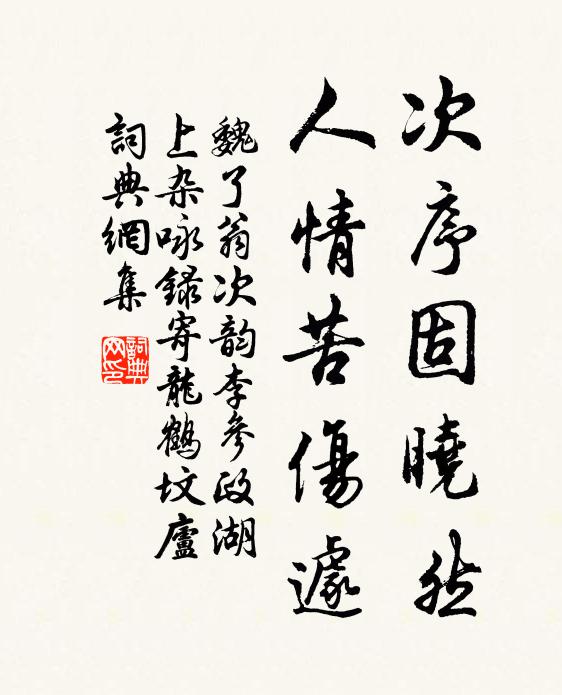 次序固曉然
人情苦傷遽
魏了翁次韵李參政湖
上杂咏録寄龍鶴坟廬
詞典網集
詞典網印